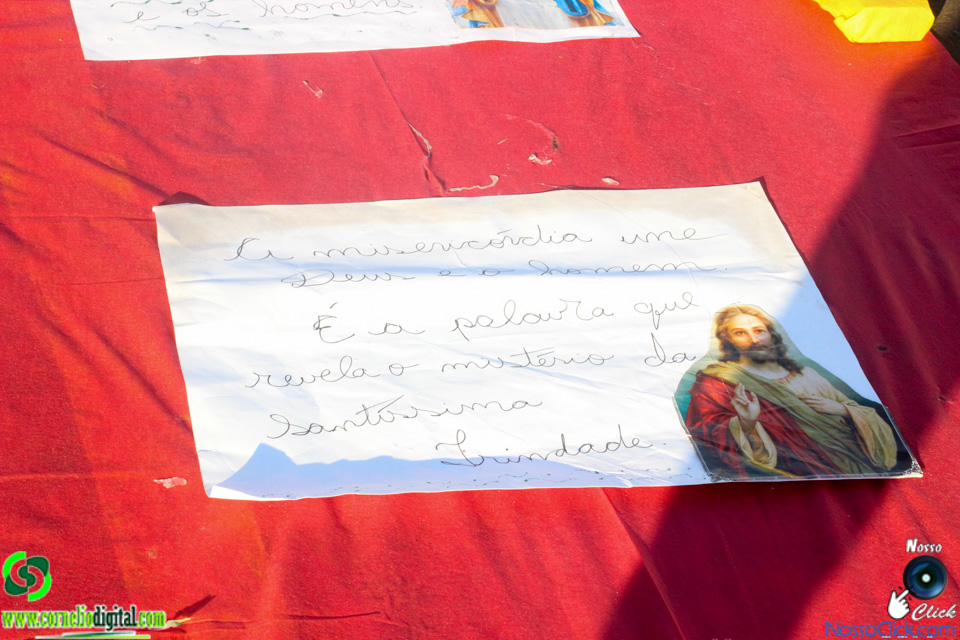 e os homens.
A misericórdia une
Deus e o homem.
É a palavra que
revela o mistério da
Santíssima
Trindade.
www.corneliodigital.com
Nosso
Click
NossoClick.com